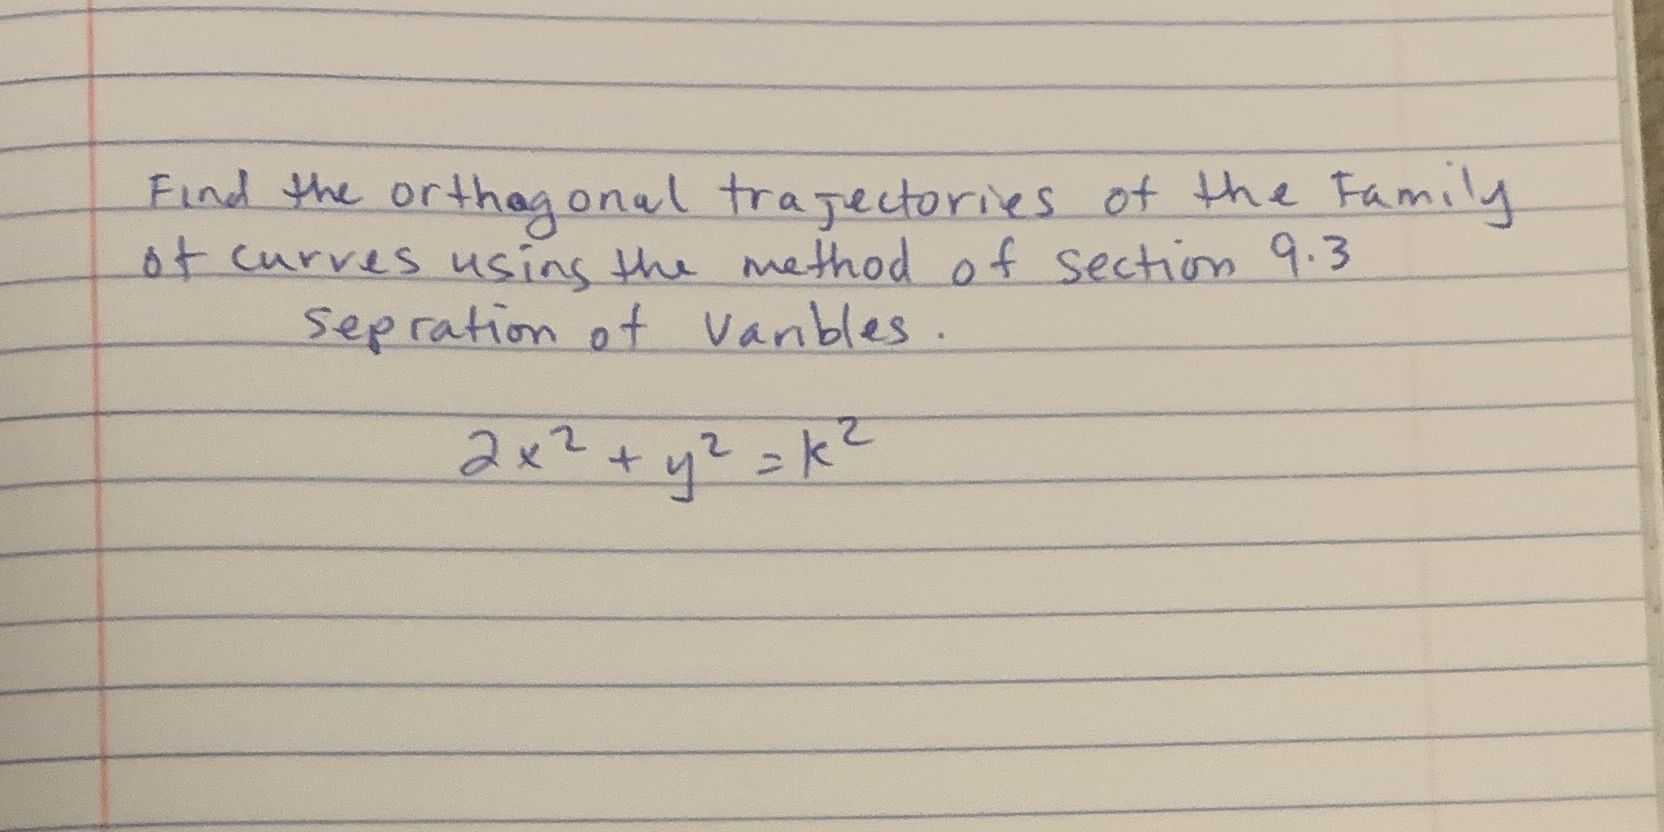 Find the orthagonal trajectories of the Family
of curves using the method of section 9.3
sepration of varibles.
2x² + y² = k²